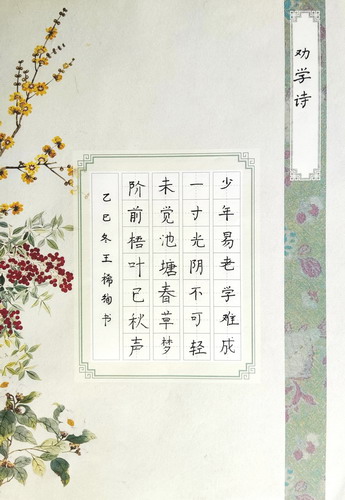 劝学诗
少年易老学难成
一寸光阴不可轻
未觉池塘春草梦
阶前梧叶已秋声
乙巳冬王稀绚书